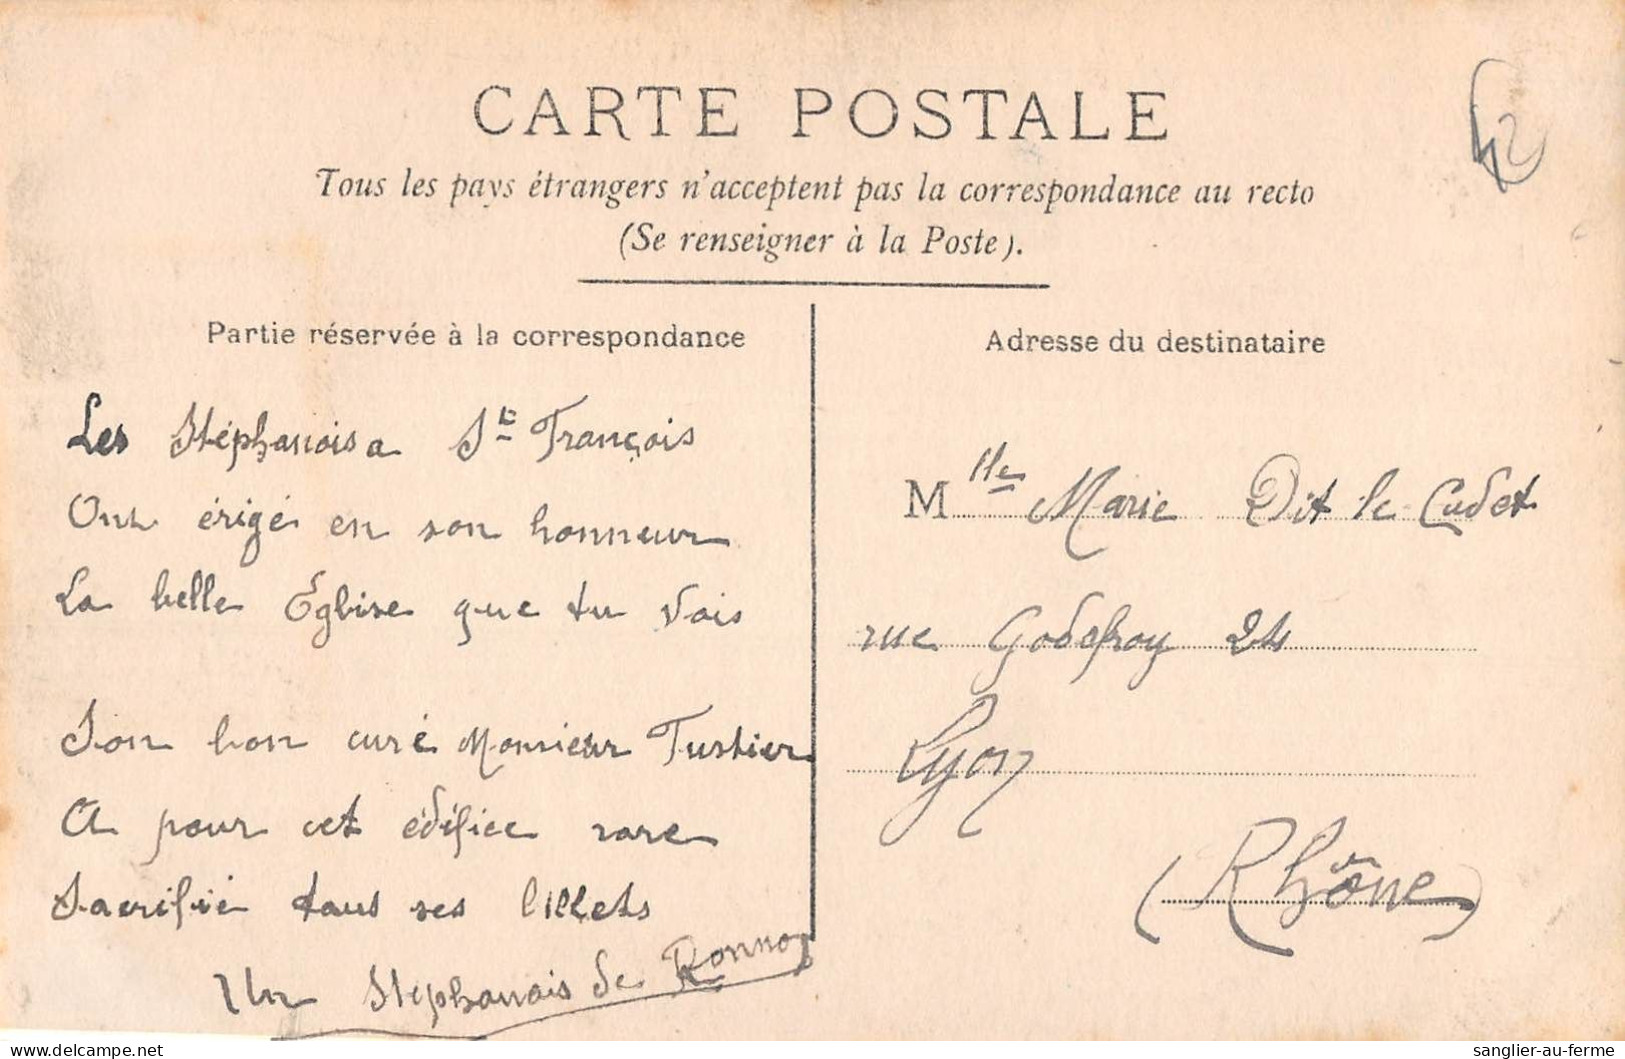 CARTE POSTALE
42
Tous les pays étrangers n'acceptent pas la correspondance au recto
(Se renseigner à la Poste).
Partie réservée à la correspondance
Les Stéphanois a St François
Ont érigé en son honneur
La belle Eglise que tu vois
Son bon curé Monsieur Tustier
A pour cet édifice rare
Sacrifié tous ses billets
Un Stéphanois de
Adresse du destinataire
Mlle Marie Dit le Cadet
rue Godefroy 24
Lyon
(Rhône)
sanglier-au-ferme